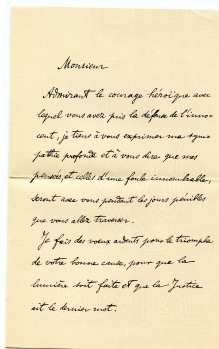 Monsieur
Admirant le courage héroïque avec
lequel vous avez pris la défense de l'inno-
cent, je tiens à vous exprimer ma sym-
pathie profonde et à vous dire que nos
pensées, et celles d'une foule innombrable,
seront avec vous pendant les jours pénibles
que vous allez traverser.
Je fais des vœux ardents pour le triomphe
de votre bonne cause, pour que la
lumière soit faite et que la Justice
ait le dernier mot.